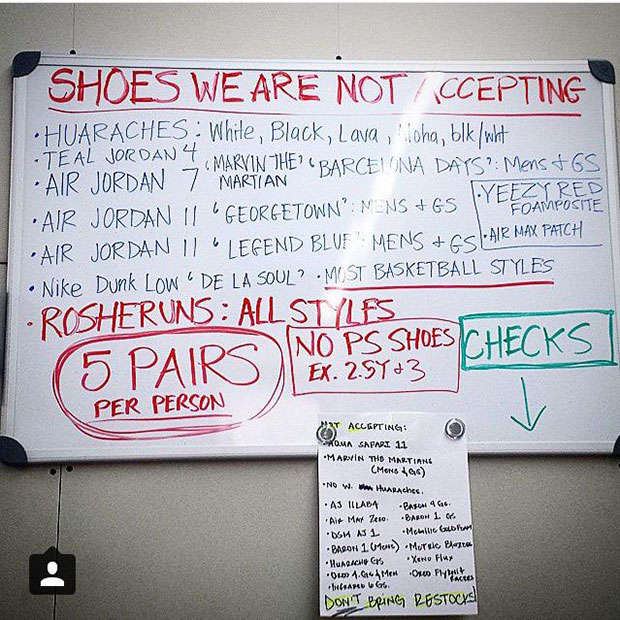 SHOES WE ARE NOT ACCEPTING
• HUARACHES: White, Black, Lava, Aloha, blk/wht
• TEAL JORDAN 4
• AIR JORDAN 7 "MARVIN THE MARTIAN" "BARCELONA DAYS": Mens + GS
• AIR JORDAN 11 "GEORGETOWN": MENS + GS
• AIR JORDAN 11 "LEGEND BLUE": MENS + GS
• YEEZY RED
FOAMPOSITE
• AIR MAX PATCH
• Nike Dunk Low "DE LA SOUL" • MOST BASKETBALL STYLES
• ROSHERUNS: ALL STYLES
5 PAIRS
PER PERSON
NO PS SHOES
EX. 2.5Y + 3
CHECKS
NOT ACCEPTING:
• AQUA SAFARI 11
• MARVIN THE MARTIANS
(MENS & GS)
• NO W. HUARACHES.
• AJ 11LAB4
• AIR MAX ZERO.
• DSM AJ 1
• BARON 1 (MENS)
• HUARACHE GS
• OREO 4. GS & MEN
• INFRARED 6 GS.
• BARON 9 GS.
• BARON 1 GS
• METALLIC GOLD FOAM
• METRIC BLAZERS
• XENO FLUX
• OREO FLYKNIT
RACERS
DON'T BRING RESTOCKS!